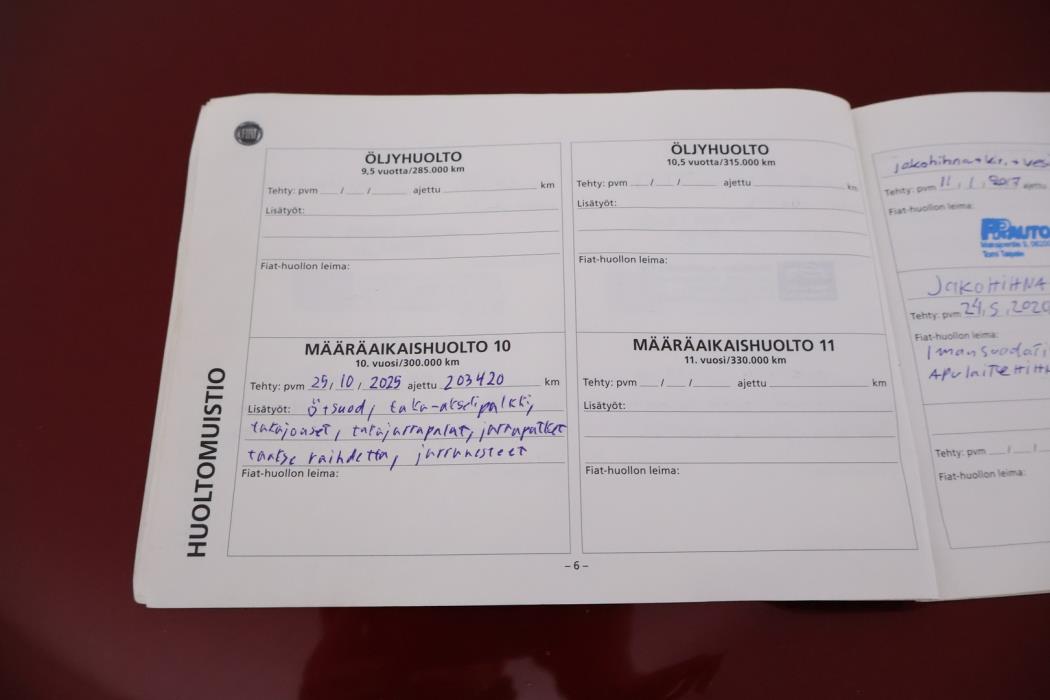 FIAT
HUOLTOMUISTIO
ÖLJYHUOLTO
9,5 vuotta/285.000 km
Tehty: pvm / / ajettu km
Lisätyöt:
Fiat-huollon leima:
ÖLJYHUOLTO
10,5 vuotta/315.000 km
Tehty: pvm / / ajettu km
Lisätyöt:
Fiat-huollon leima:
MÄÄRÄAIKAISHUOLTO 10
10. vuosi/300.000 km
Tehty: pvm 25 / 10 / 2025 ajettu 203420 km
Lisätyöt: Ö+suod, taka-akselipalkki,
takajouset, takajarrupalat, jarruputket
taakse vaihdettu, jarrunesteet
Fiat-huollon leima:
MÄÄRÄAIKAISHUOLTO 11
11. vuosi/330.000 km
Tehty: pvm / / ajettu km
Lisätyöt:
Fiat-huollon leima:
– 6 –
jakohihna+kir.+vesi
Tehty: pvm 11 / 1 / 2017 ajettu
Fiat-huollon leima:
AUTO
JAKOHIHNA
Tehty: pvm 24, 5, 2020
Fiat-huollon leima:
Imansuodati
APULAITEHIHN
Tehty: pvm / /
Fiat-huollon leima: